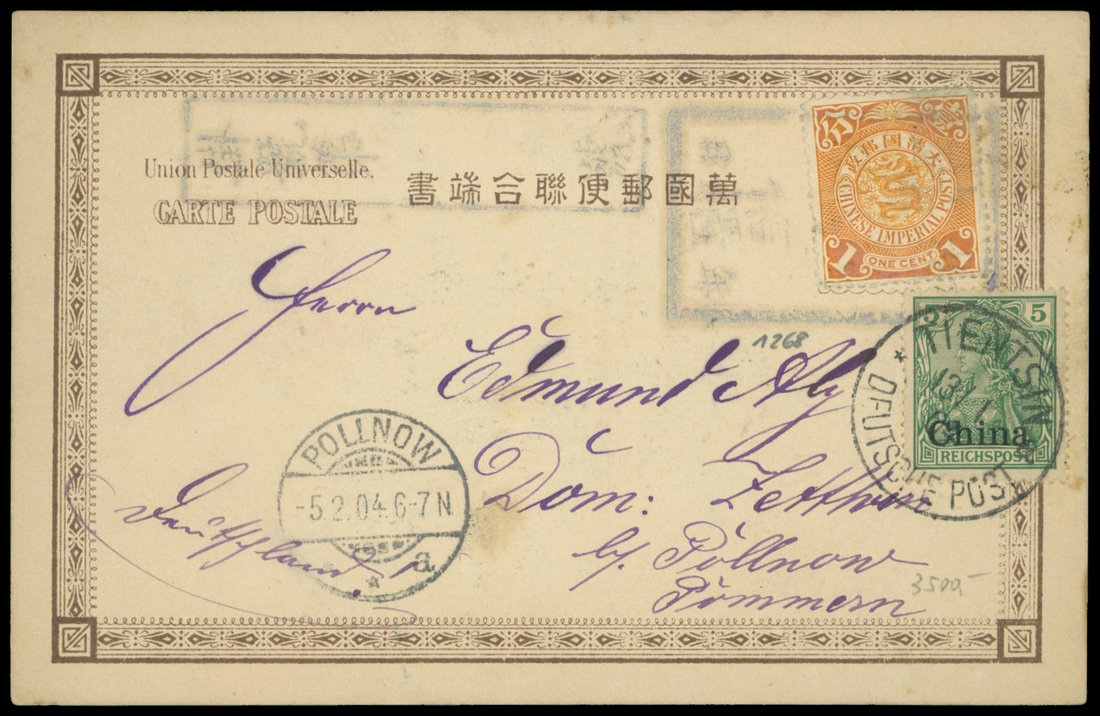 Union Postale Universelle.
CARTE POSTALE
書端合聯便郵國萬
大清國郵政
CHINESE IMPERIAL POST
1 ONE CENT 1
5
China
REICHSPOST
TIENTSIN
13/1
* DEUTSCHE POST
1268
Herrn
Edmund Aly
Dom: Zetthun
b/ Pollnow
Pommern
Deutschland!
POLLNOW
-5.2.04.6-7N
* a
3500-